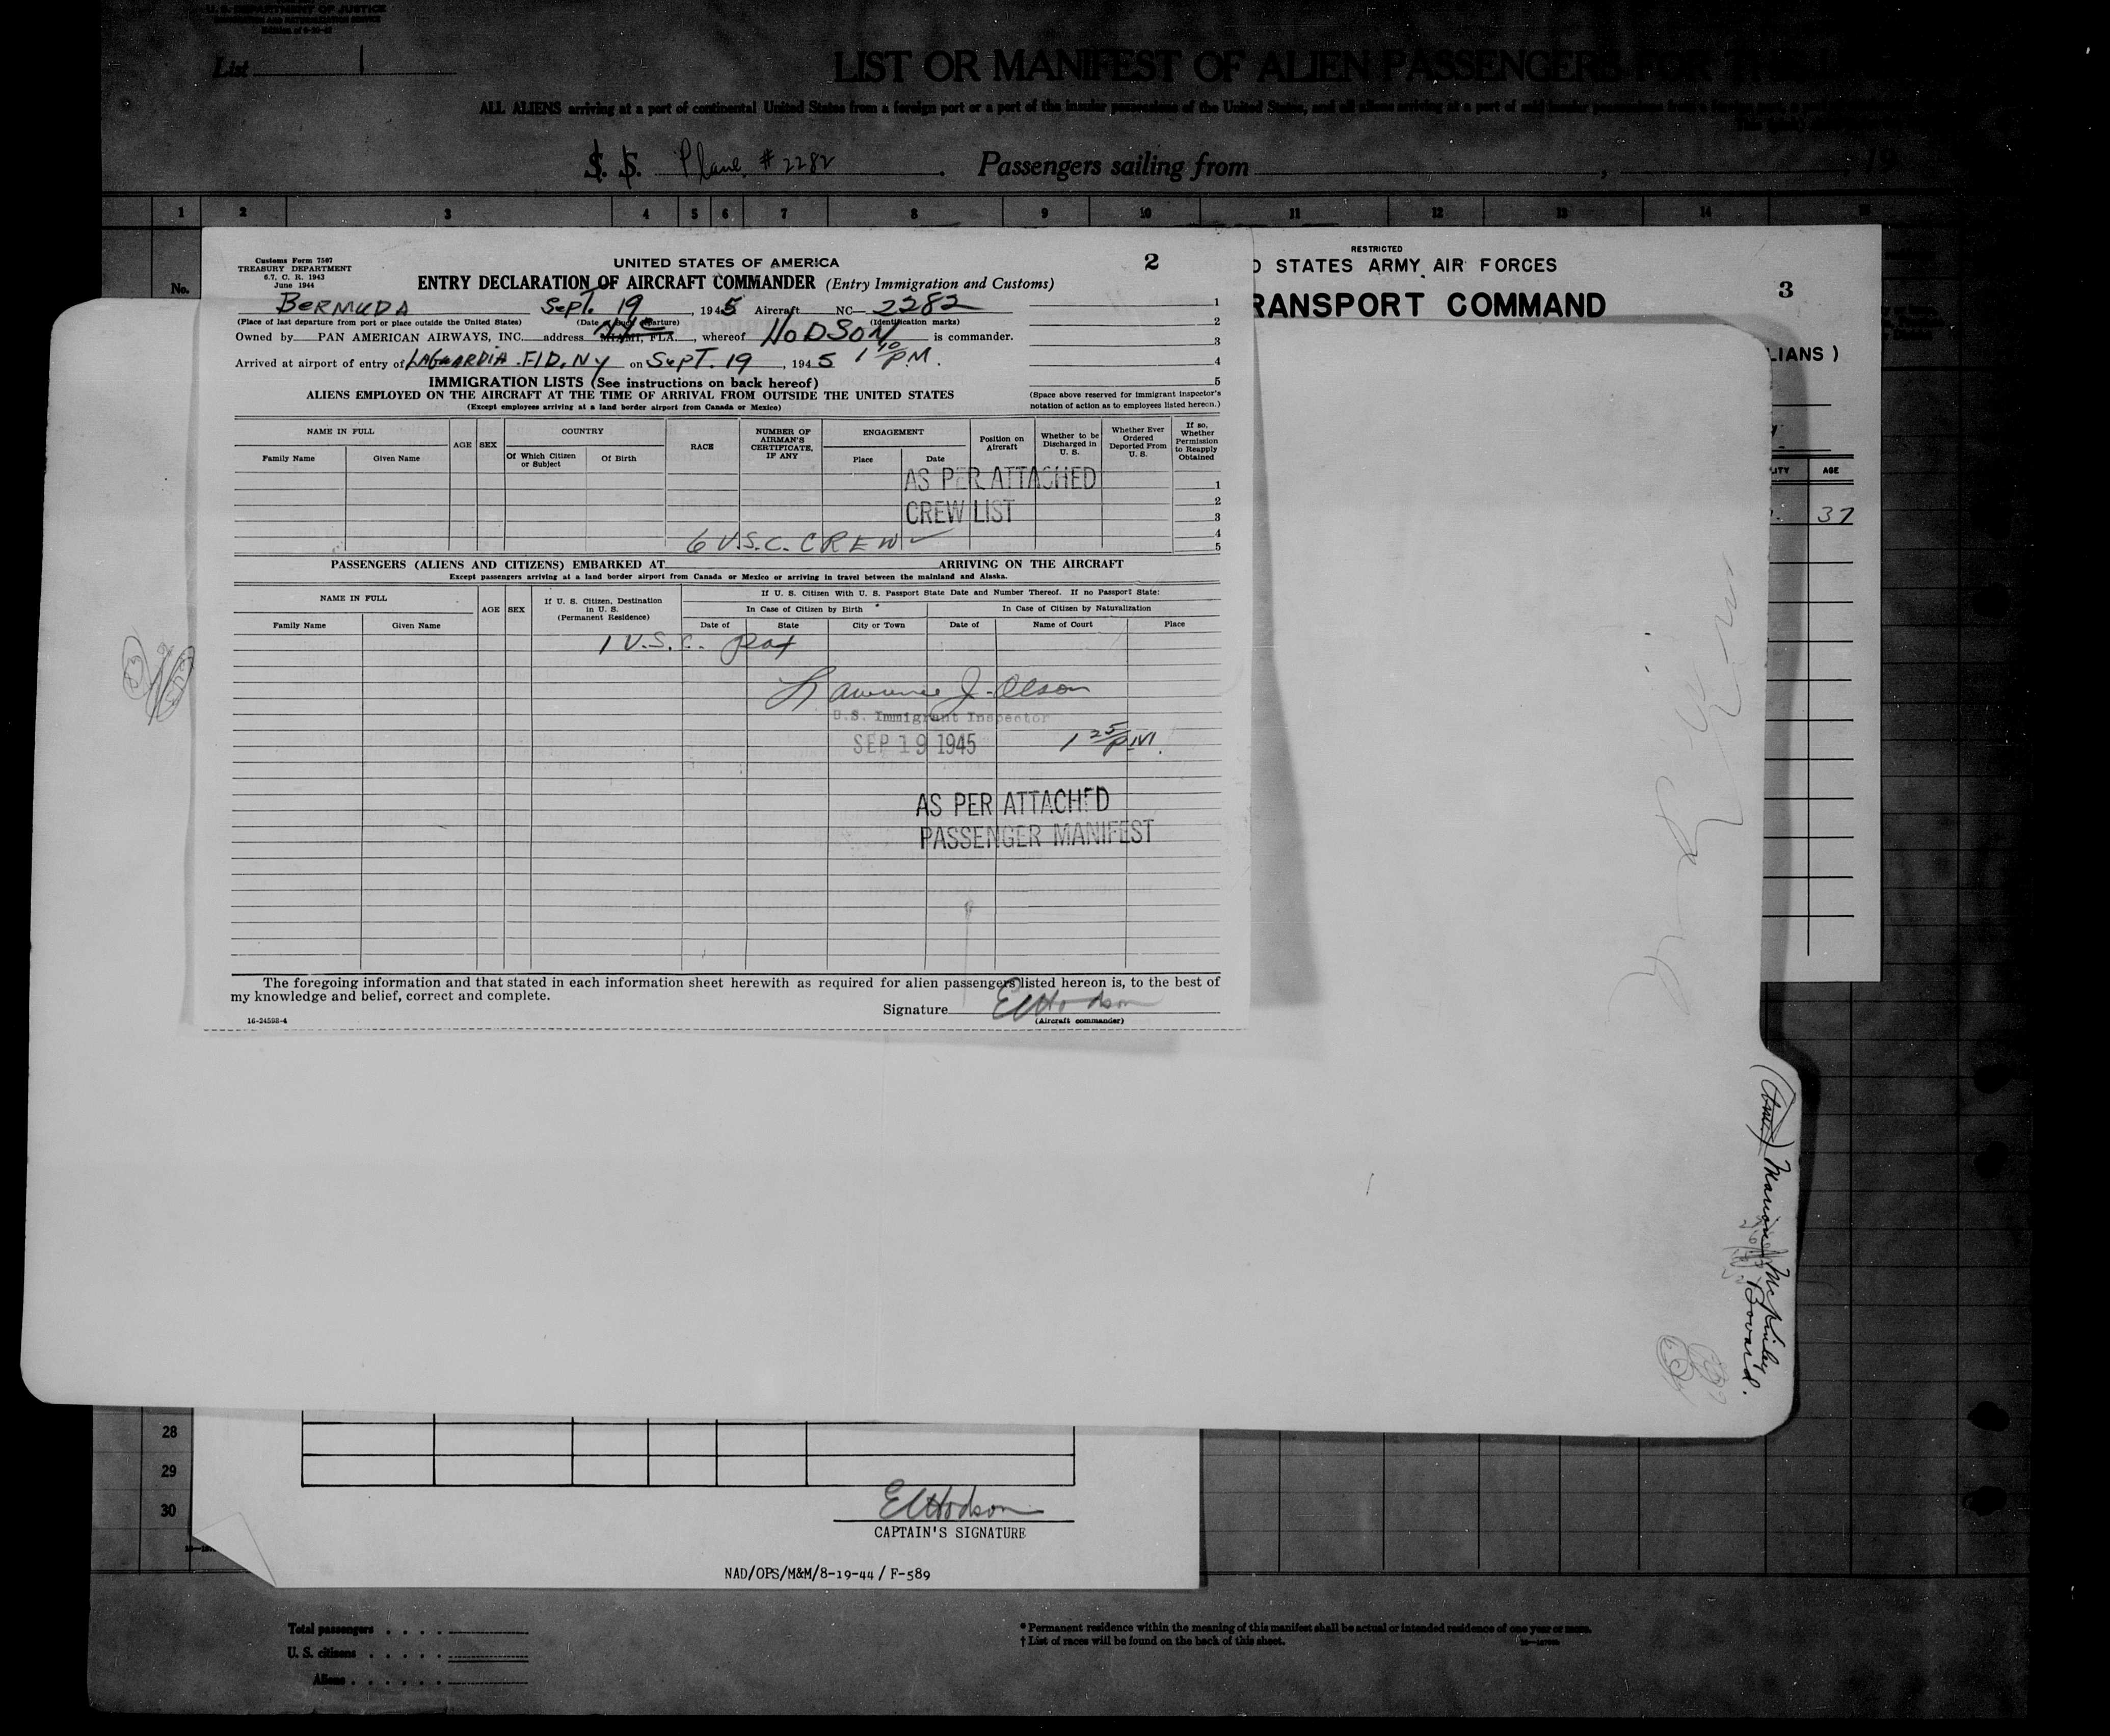 U.S. DEPARTMENT OF JUSTICE
IMMIGRATION AND NATURALIZATION SERVICE
List 1
LIST OR MANIFEST OF ALIEN PASSENGERS FOR
ALL ALIENS arriving at a port of continental United States from a foreign port or a port of the insular possessions of the United States, and all aliens arriving at a port of said insular possessions from a foreign port,
S. S. Plane #2282. Passengers sailing from , 19
1 2 3 4 5 6 7 8 9 10 11 12 13 14 15
No.
Customs Form 7507
TREASURY DEPARTMENT
6.7, C. R. 1943
June 1944
UNITED STATES OF AMERICA
2
ENTRY DECLARATION OF AIRCRAFT COMMANDER (Entry Immigration and Customs)
BERMUDA Sept. 19, 1945 Aircraft NC— 2282
(Place of last departure from port or place outside the United States) (Date of such departure) (Identification marks)
Owned by PAN AMERICAN AIRWAYS, INC. address MIAMI, FLA. NYC, whereof HODSON is commander.
Arrived at airport of entry of LAGUARDIA FLD, NY on SepT. 19, 1945 1 10 P.M.
1
2
3
4
5
IMMIGRATION LISTS (See instructions on back hereof)
ALIENS EMPLOYED ON THE AIRCRAFT AT THE TIME OF ARRIVAL FROM OUTSIDE THE UNITED STATES
(Except employees arriving at a land border airport from Canada or Mexico)
(Space above reserved for immigrant inspector's notation of action as to employees listed hereon.)
NAME IN FULL AGE SEX COUNTRY RACE NUMBER OF AIRMAN'S CERTIFICATE, IF ANY ENGAGEMENT Position on Aircraft Whether to be Discharged in U. S. Whether Ever Ordered Deported From U. S. If so, Whether Permission to Reapply Obtained
Family Name Given Name Of Which Citizen or Subject Of Birth Place Date
AS PER ATTACHED
CREW LIST
1
2
3
4
5
6 U.S.C. CREW
PASSENGERS (ALIENS AND CITIZENS) EMBARKED AT ARRIVING ON THE AIRCRAFT
Except passengers arriving at a land border airport from Canada or Mexico or arriving in travel between the mainland and Alaska.
NAME IN FULL AGE SEX If U. S. Citizen, Destination in U. S. (Permanent Residence) If U. S. Citizen With U. S. Passport State Date and Number Thereof. If no Passport State:
In Case of Citizen by Birth In Case of Citizen by Naturalization
Family Name Given Name Date of State City or Town Date of Name of Court Place
1 U.S.C. pax
Lawrence J. Olson
U.S. Immigrant Inspector
SEP 19 1945 1 25 P.M.
AS PER ATTACHED
PASSENGER MANIFEST
The foregoing information and that stated in each information sheet herewith as required for alien passengers listed hereon is, to the best of
my knowledge and belief, correct and complete.
Signature E C Hodson
(Aircraft commander)
16-24598-4
RESTRICTED
D STATES ARMY AIR FORCES
RANSPORT COMMAND
3
LIANS )
ITY AGE
37
Marion
Bovaird.
28
29
30
E C Hodson
CAPTAIN'S SIGNATURE
NAD/OPS/M&M/8-19-44/ F-589
Total passengers
U. S. citizens
Aliens
* Permanent residence within the meaning of this manifest shall be actual or intended residence of one year or more.
† List of races will be found on the back of this sheet.